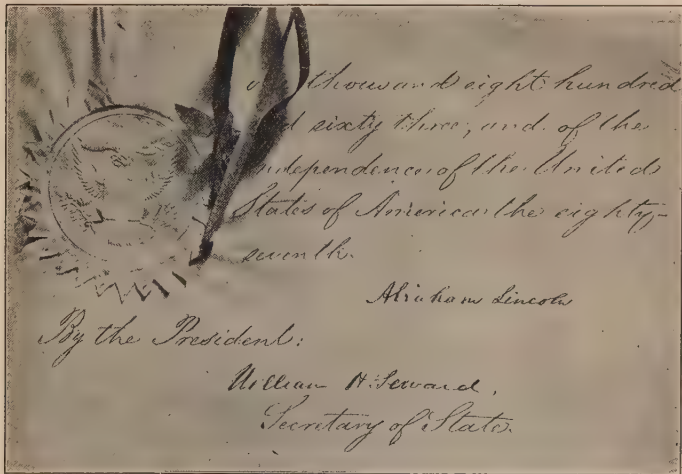 thousand eight hundred
d sixty three, and of the
ndependence of the United
States of America the eighty-
seventh.
Abraham Lincoln
By the President:
William H. Seward,
Secretary of State.